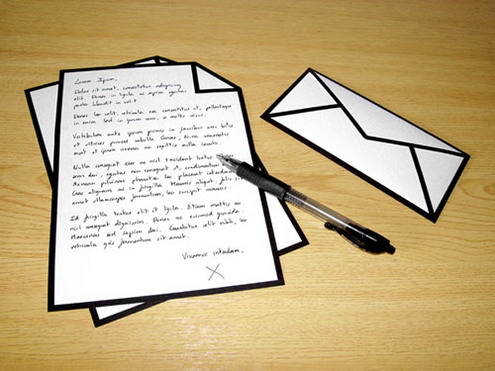 Lorem Ipsum,
Dolor sit amet, consectetur adipiscing
elit. Donec in ligula ac sapien egestas
porta blandit in velit.
Donec leo velit, vehicula nec consectetur et, pellentesque
in enim. Sed in ipsum sem, a mollis risus.
Vestibulum ante ipsum primis in faucibus orci luctus
et ultrices posuere cubilia Curae; Nunc venenatis
erat et ipsum viverra ac sagittis nulla iaculis.
Nulla consequat erat ac nisl tincidunt tortor
eros dui, egestas non consequat et, condimentum
Aenean pulvinar pharetra leo placerat interdum.
Cras aliquam mi in fringilla. Mauris aliquet felis
amet ullamcorper fermentum, leo suscipit
Id fringilla tortor elit et ligula. Etiam mattis mi
nisl consequat dignissim. Donec ac euismod gravida
Maecenas sed sapien dui. Curabitur elit nibh, leo
vehicula quis fermentum sit amet.
Vivamus interdum,
X